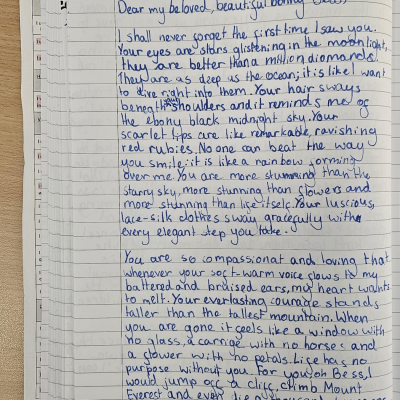 Dear my beloved, beautiful bonny Bess,
I shall never forget the first time I saw you.
Your eyes are stars glistening in the moonlight,
they are better than a million diomands!
They are as deep as the ocean; it is like I want
to dive right into them. Your hair sways
benegth your shoulders and it reminds me of
the ebony black midnight sky. Your
scarlet lips are like remarkable, ravishing
red rubies. No one can beat the way
you smile; it is like a rainbow forming
over me. You are more stunning than the
starry sky, more stunning than flowers and
more stunning than life itself. Your luscious,
lace-silk clothes sway gracefully with
every elegant step you take.
You are so compassionat and loving that
whenever your soft-warm voice flows to my
battered and bruised ears, my heart wants
to melt. Your everlasting courage stands
taller than the tallest mountain. When
you are gone it feels like a window with
no glass, a carrige with no horses and
a flower with no petals. Life has no
purpose without you. For you, oh Bess, I
would jump off a cliff, climb Mount
Everest and even die a thousand